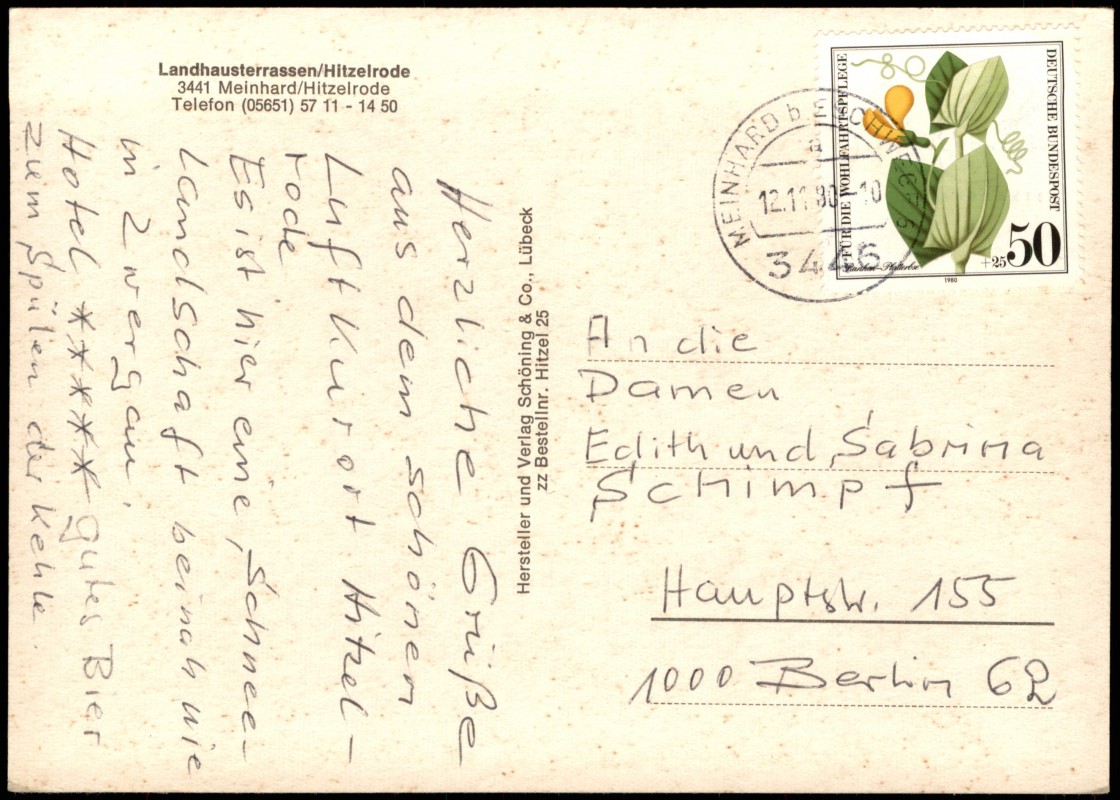 Landhausterrassen/Hitzelrode
3441 Meinhard/Hitzelrode
Telefon (05651) 57 11 - 14 50
Herzliche Grüße
aus dem schönen
Luftkurort Hitzel-
rode
Es ist hier eine, Schnee-
Landschaft beinah wie
in Zwergau,
Hotel **** gutes Bier
zum Spülen der Kehle.
Hersteller und Verlag Schöning & Co., Lübeck
zz Bestellnr. Hitzel 25
FÜR DIE WOHLFAHRTSPFLEGE
DEUTSCHE BUNDESPOST
+25 50
Ranken-Platterbse
1980
MEINHARD b ESCHWEGE
a
12.11.80-10
3446
An die
Damen
Edith und Sabrina
Schimpf
Hauptstr. 155
1000 Berlin 62